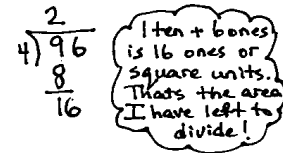 2
4)96
8
16
1 ten + 6 ones
is 16 ones or
square units.
Thats the area
I have left to
divide!